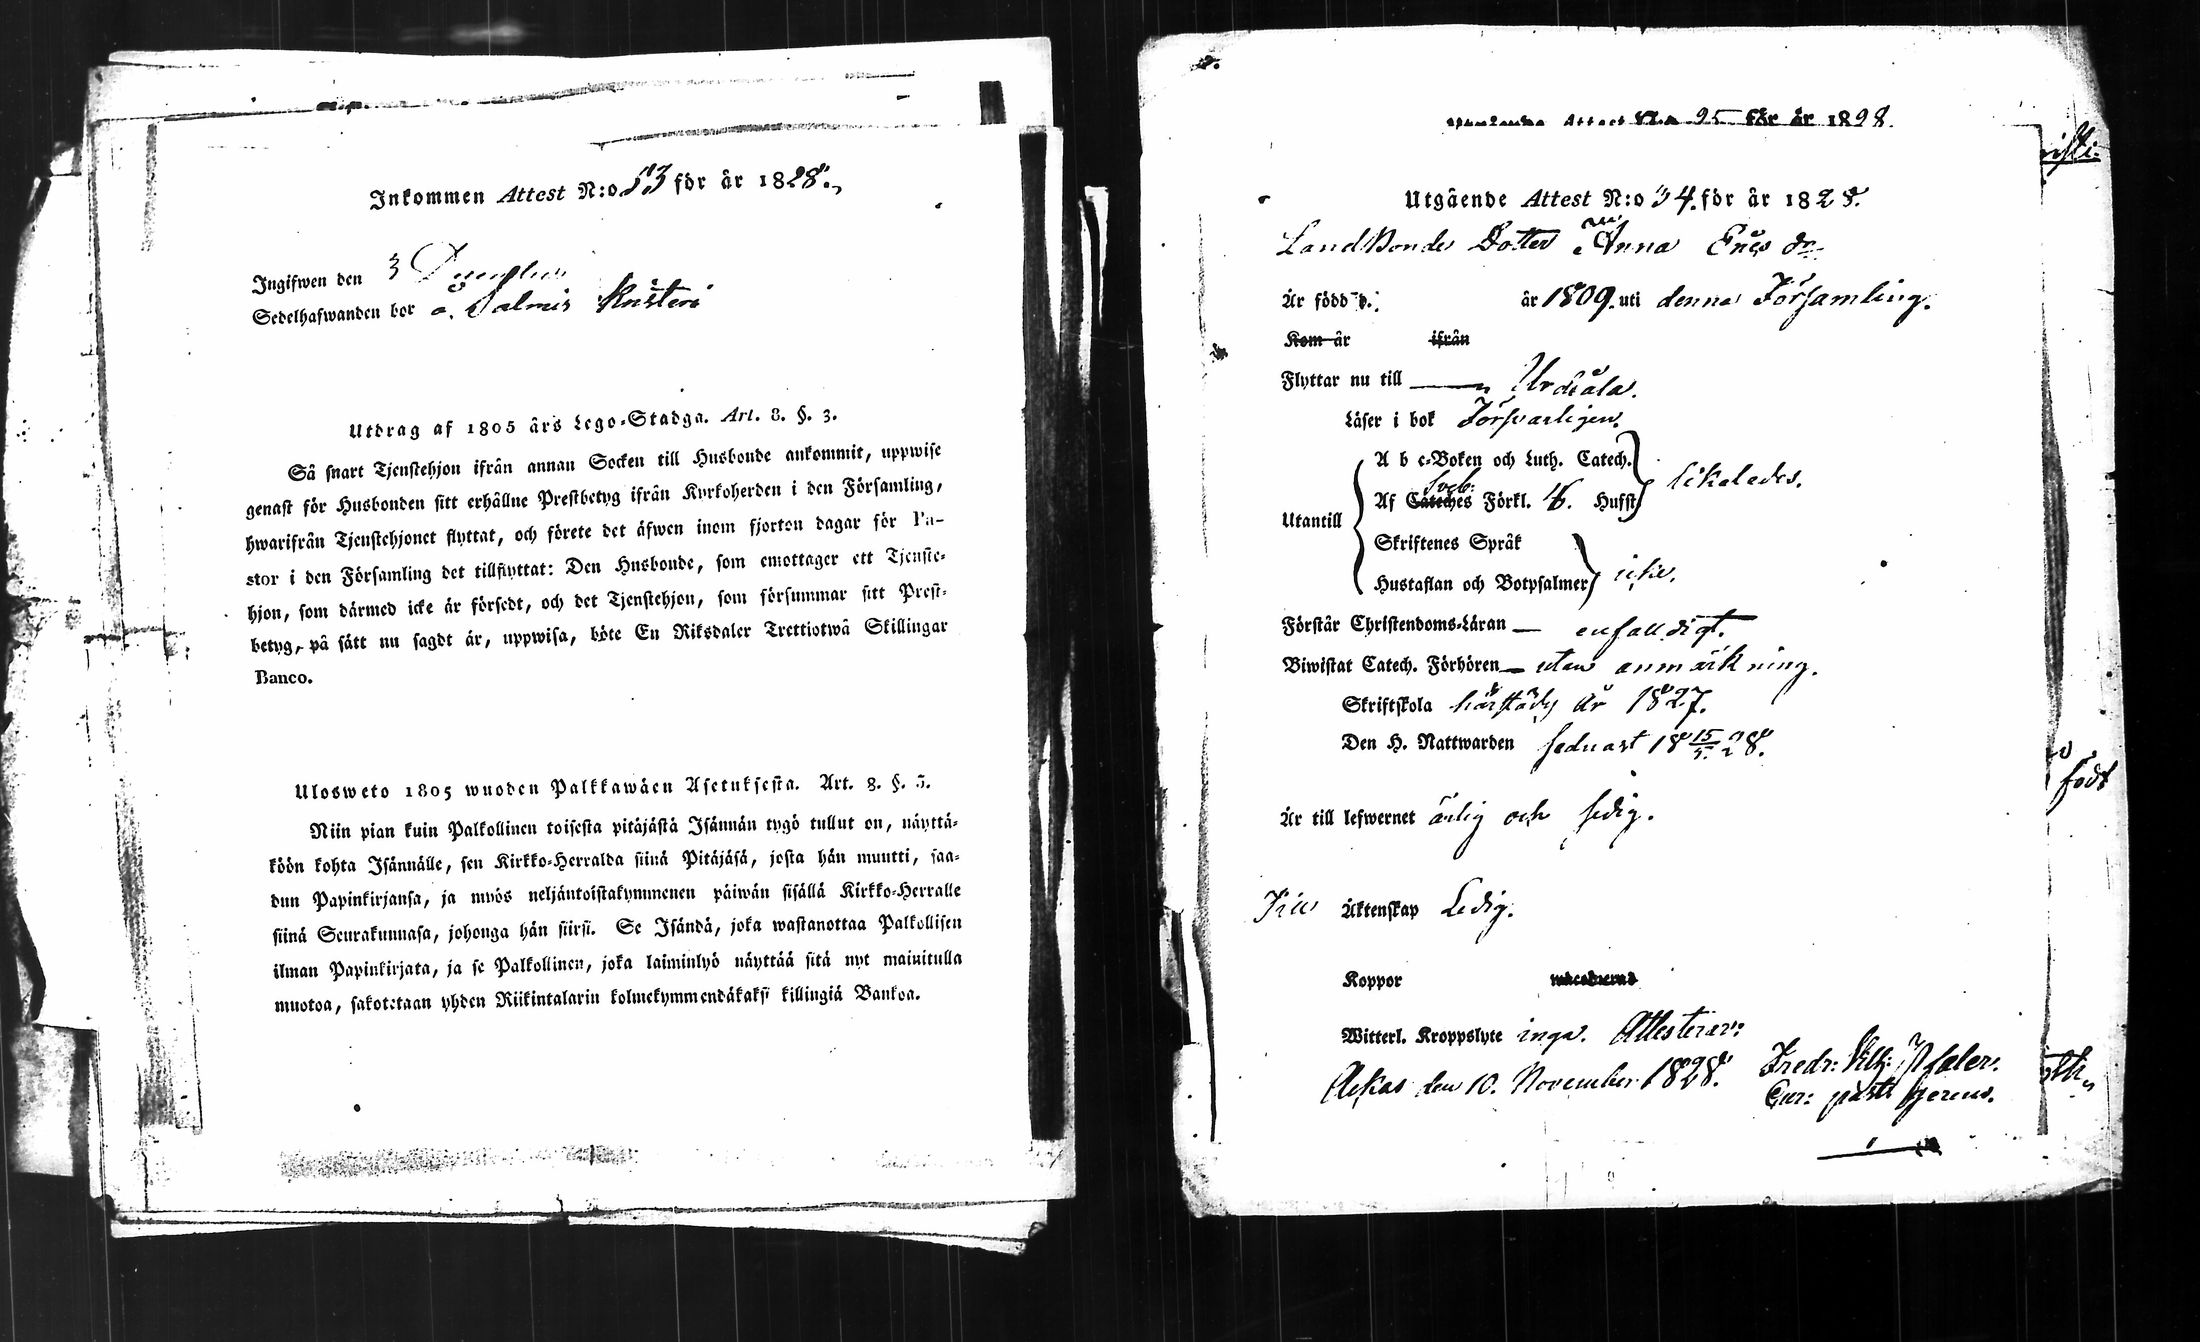 Inkommen Attest N:o 53 för år 1828.
Ingifwen den 3 December
Sedelhafwanden bor å Salmis
Utdrag af 1805 års Lego-Stadga. Art. 8. §. 3.
Så snart Tjenstehjon ifrån annan Socken till Husbonde ankommit, uppwise
genast för Husbonden sitt erhållne Prestbetyg ifrån Kyrkoherden i den Församling,
hwarifrån Tjenstehjonet flyttat, och förete det äfwen inom fjorton dagar för Pa-
stor i den Församling det tillflyttat: Den Husbonde, som emottager ett Tjenste-
hjon, som därmed icke är försedt, och det Tjenstehjon, som försummar sitt Prest-
betyg, på sätt nu sagdt är, uppwisa, böte En Riksdaler Trettiotwå Skillingar
Banco.
Ulosweto 1805 wuoden Palkkawäen Asetuksesta. Art. 8. §. 3.
Niin pian kuin Palkollinen toisesta pitäjästä Isännän tygö tullut on, näyttä-
köön kohta Isännälle, sen Kirkko-Herralda siinä Pitäjäsä, josta hän muutti, saa-
dun Papinkirjansa, ja myös neljäntoistakymmenen päiwän sisällä Kirkko-Herralle
siinä Seurakunnasa, johonga hän siirsi. Se Isändä, joka wastanottaa Palkollisen
ilman Papinkirjata, ja se Palkollinen, joka laiminlyö näyttää sitä nyt mainitulla
muotoa, sakotetaan yhden Riikintalarin kolmekymmendäkaksi killingiä Bankoa.
Attest N:o 95 för år 1828.
Utgående Attest N:o 34. för år 1828.
Landbonde Dotter Anna Ericsdr
Är född d. år 1809. uti denna Församling.
Kom år ifrån
Flyttar nu till Urdiala.
Läser i bok Försvarligen.
A b c-Boken och Luth. Catech.
likaledes.
Af Sveb. Catechés Förkl. 4. Hufst.
Utantill
Skriftenes Språk
Hustaflan och Botpsalmer icke.
Förstår Christendoms-Läran enfaldigt.
Biwistat Catech. Förhören utan anmärkning.
Skriftskola härstädes år 1827.
Den H. Nattwarden sednast 18 15/5. 28.
Är till lefwernet ärlig och sedig.
Fri Äktenskap Ledig.
Koppor
Witterl. Kroppslyte inga. Attesterar:
Ackas den 10. November 1828. Fredr: Wilh: Pfaler.
Cur: past: gerens.